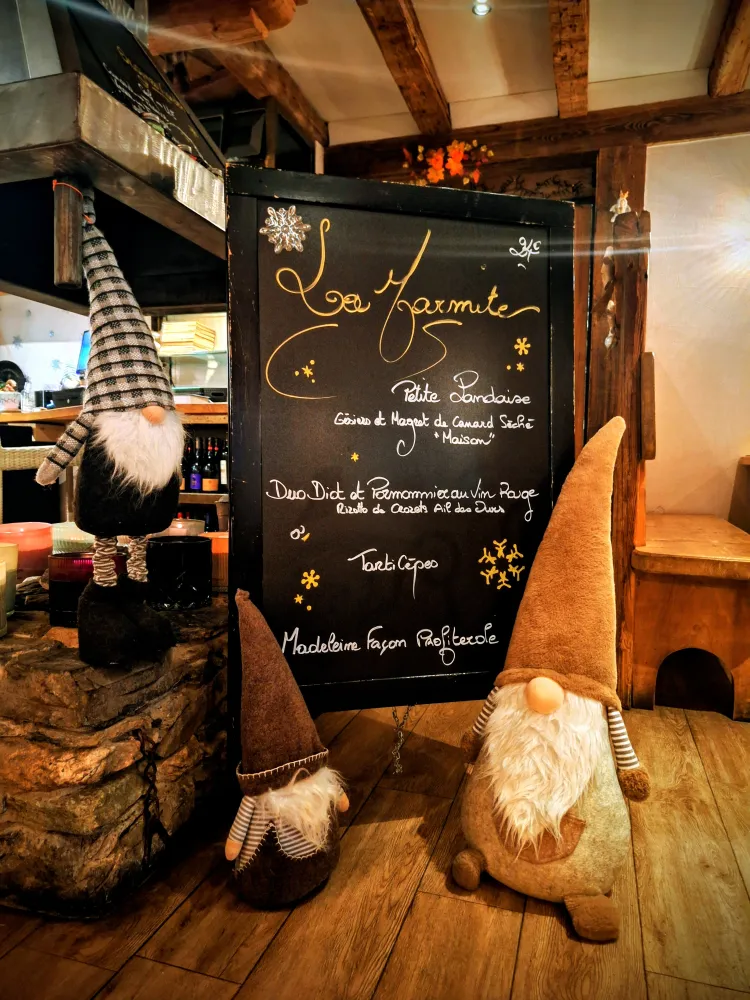 24€
La Marmite
Petite Landaise
Gésiers et Magret de Canard Séché
"Maison"
Duo Diot et Pormonnier au Vin Rouge
Risotto de Crozets Ail des Ours
ou
TartiCèpes
Madeleine Façon Profiterole